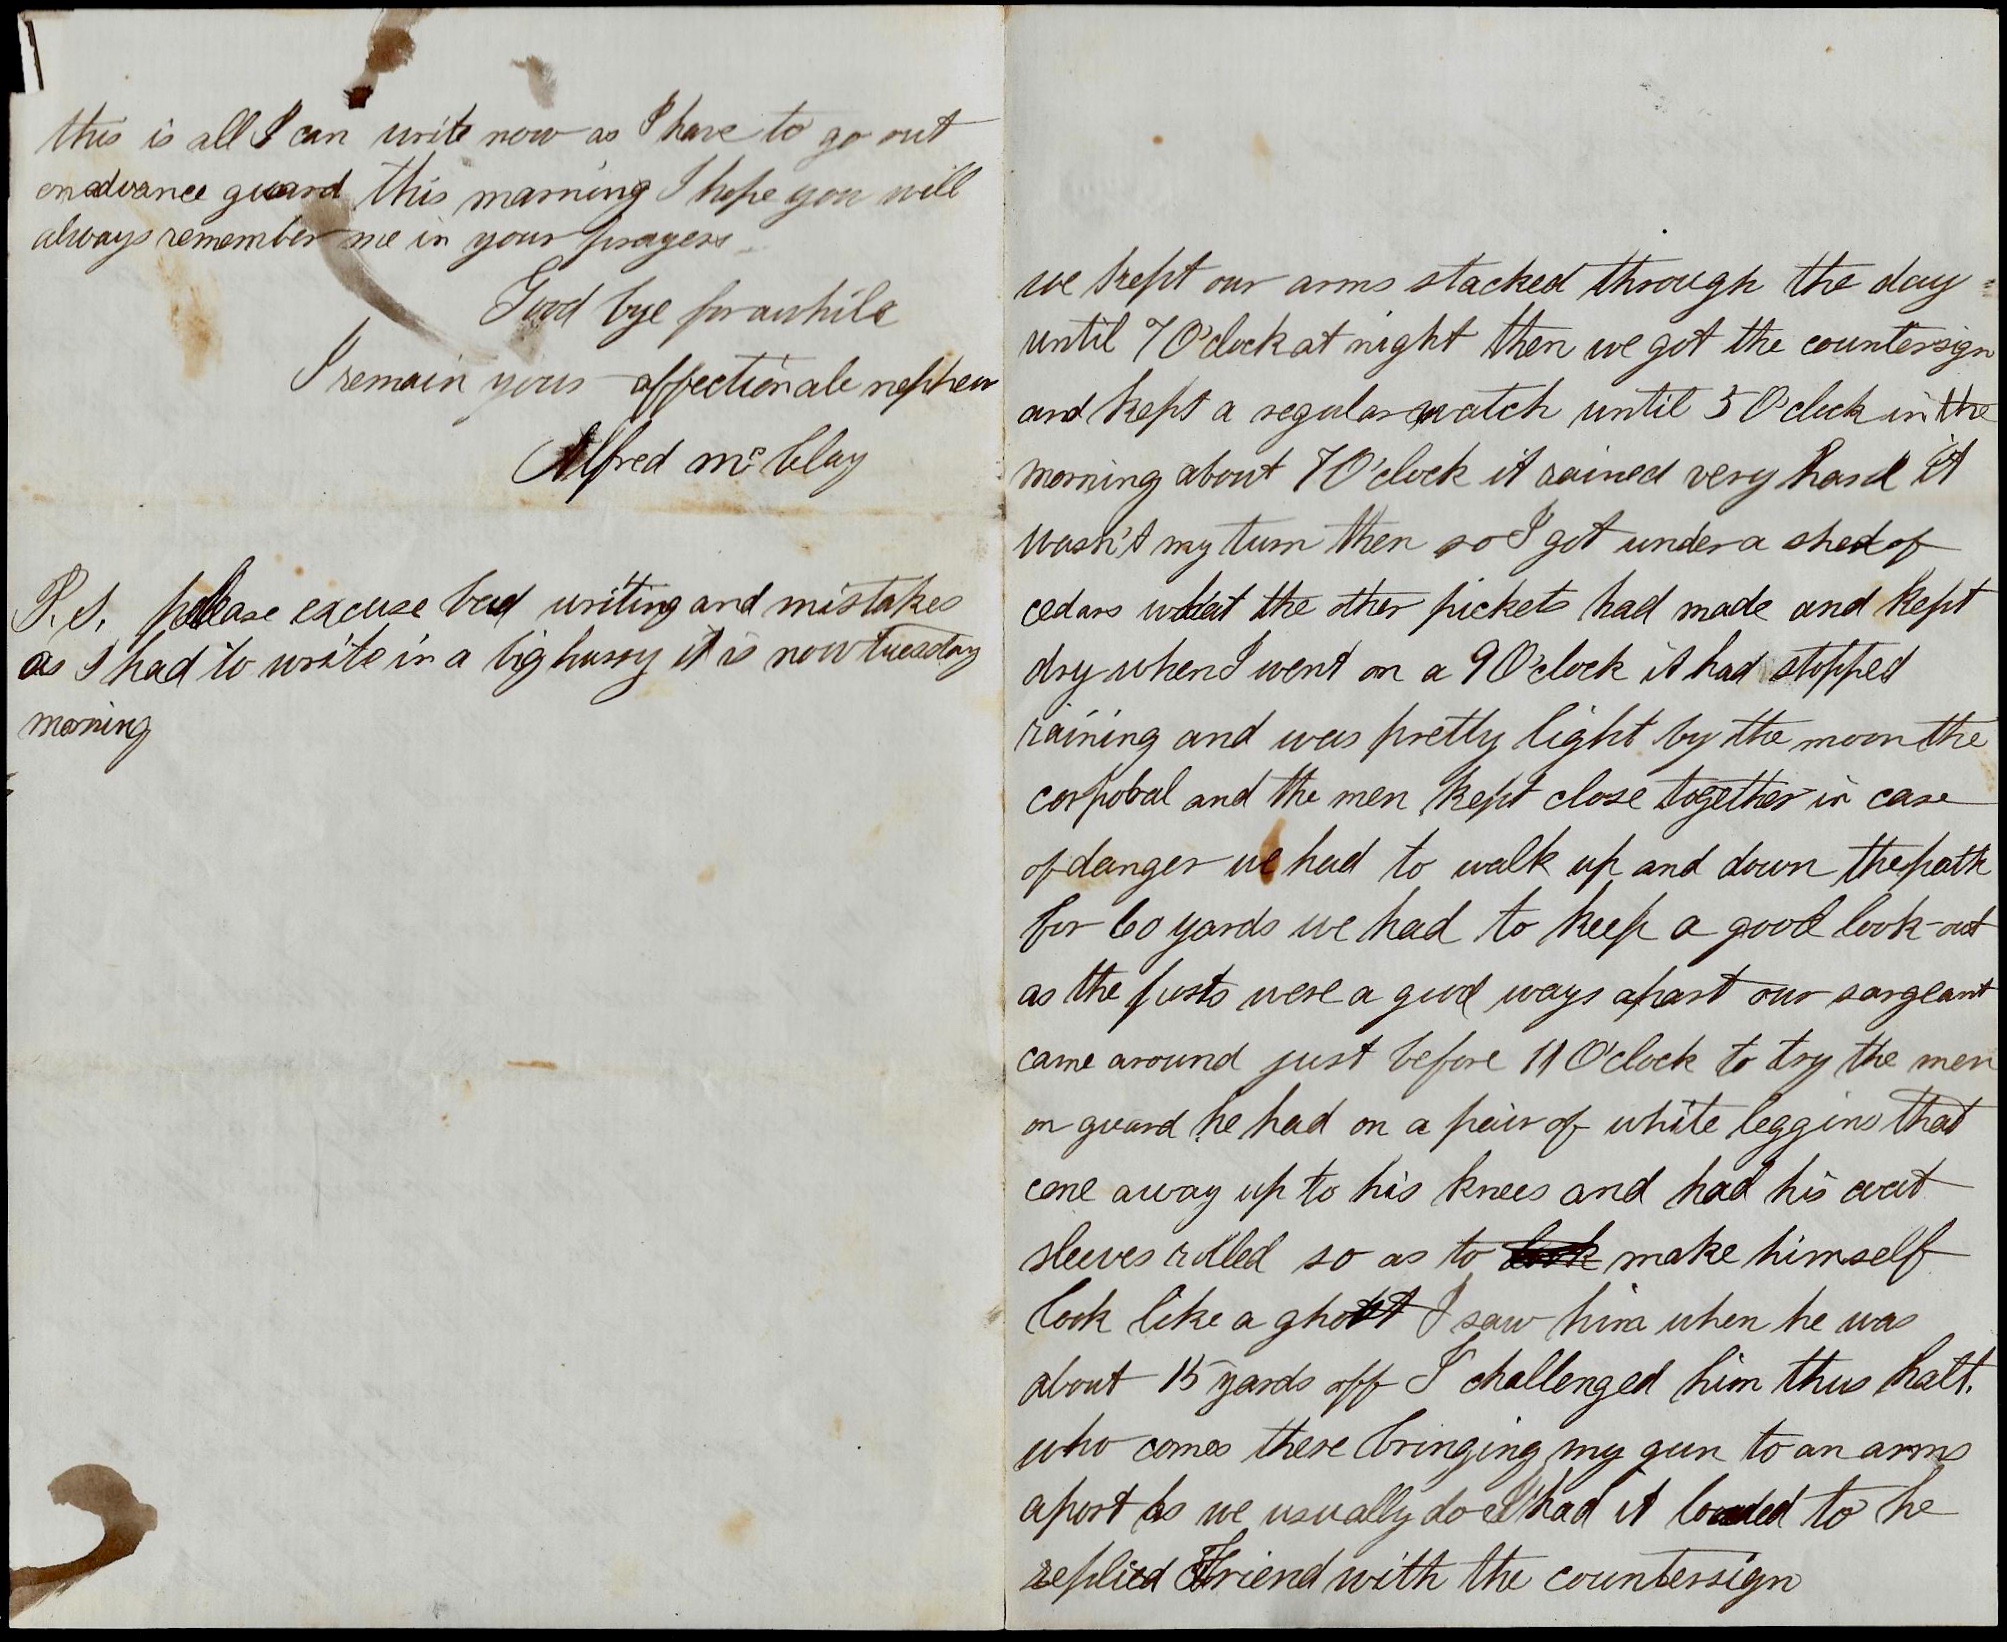 this is all I can write now as I have to go out
on advance guard this marning I hope you will
always remember me in your prayers
Good bye for awhile
I remain yous affectionale nephew
Alfred Mc Clay
P.S. please excuse bad writing and mistakes
as I had to write in a big hurry it is now tuesday
morning
we kept our arms stacked through the day
until 7 O'clock at night then we got the countersign
and kept a regular watch until 5 O'clock in the
morning about 7 O'clock it rained very hard it
wasn't my turn then so I got under a shed of
cedars what the other pickets had made and kept
dry when I went on a 9 O'clock it had stopped
raining and was pretty light by the moon the
corporal and the men kept close together in case
of danger we had to walk up and down the path
for 60 yards we had to keep a good look-out
as the posts were a good ways apart our sargeant
came around just before 11 O'clock to try the men
on guard he had on a pair of white leggins that
cone away up to his knees and had his coat
sleeves rolled so as to look make himself
look like a ghost I saw him when he was
about 15 yards off I challenged him thus halt.
who comes there bringing my gun to an arms
aport as we usually do I had it loaded to he
replied Friend with the countersign